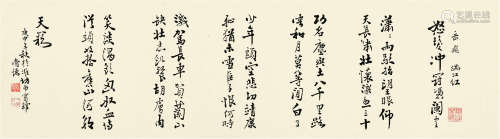 岳飛 滿江紅
怒髮冲冠憑闌處
瀟瀟雨歇抬望眼仰
天長嘯壯懷激烈三十
功名塵與土八千里路
雲和月莫等閑白了
少年頭空悲切靖康
恥猶未雪臣子恨何時
滅駕長車踏破賀蘭山
缺壯志飢餐胡虜肉
笑談渴飲匈奴血待
從頭收拾舊山河朝
天闕